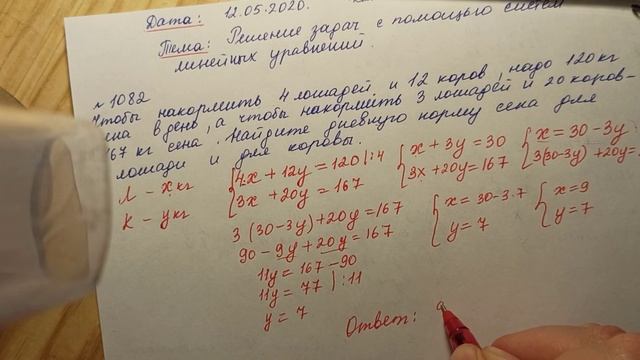 Дата: 12.05.2020.
Тема: Решение задач с помощью систем
линейных уравнений.
№ 1082
Чтобы накормить 4 лошадей и 12 коров, надо 120 кг
сена в день, а чтобы накормить 3 лошадей и 20 коров-
167 кг сена. Найдите дневную норму сена для
лошади и для коровы.
Л - x кг
К - y кг
4x + 12y = 120 | :4
3x + 20y = 167
x + 3y = 30
3x + 20y = 167
x = 30 - 3y
3(30-3y) + 20y =
3 (30 - 3y) + 20y = 167
90 - 9y + 20y = 167
11y = 167 - 90
11y = 77 | :11
y = 7
x = 30 - 3·7
y = 7
x = 9
y = 7
Ответ: